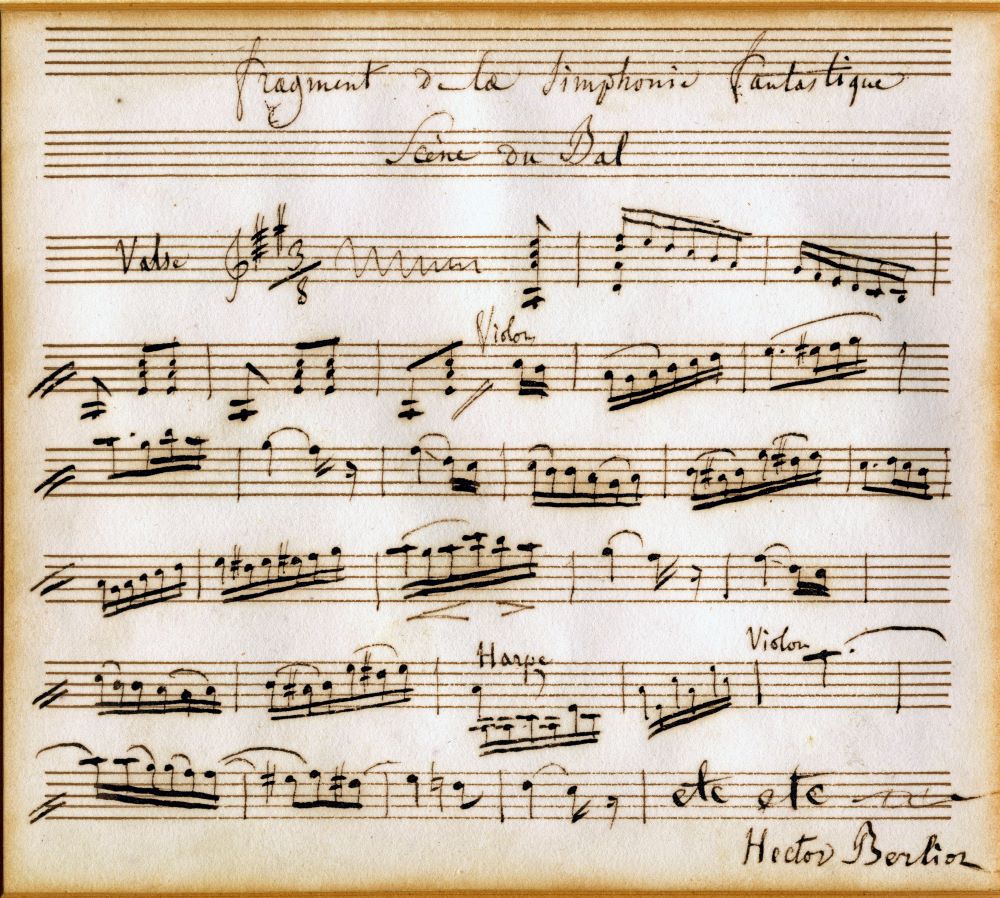 Fragment de la Simphonie Fantastique
Scène du Bal
Valse 3/8
Violon
Harpe
Violon
etc etc
Hector Berlioz